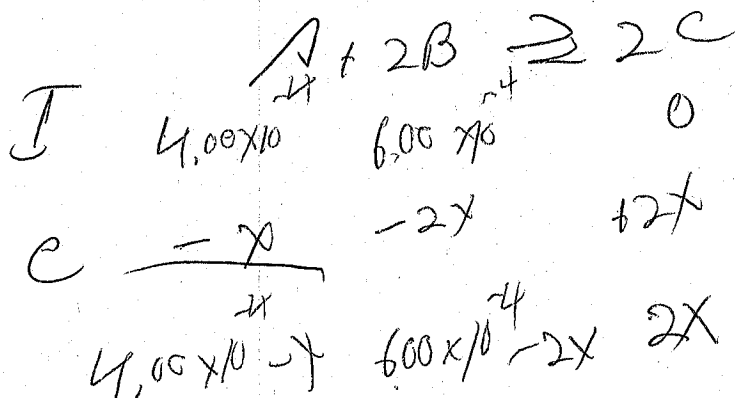 A + 2B ⇌ 2C
I 4.00×10⁻⁴ 6.00×10⁻⁴ 0
C -x -2x +2x
4.00×10⁻⁴-x 6.00×10⁻⁴-2x 2x